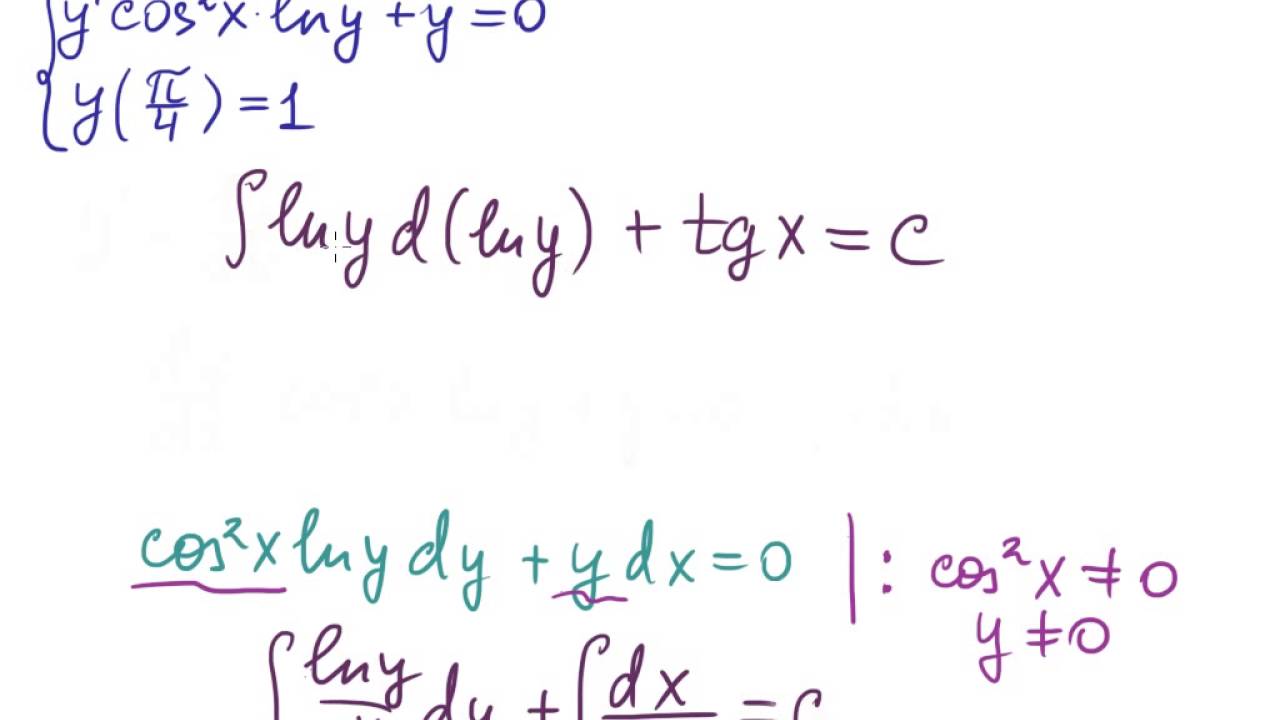 y' cos²x · ln y + y = 0
y(π/4) = 1
∫ ln y d(ln y) + tg x = c
cos²x ln y dy + y dx = 0 | : cos²x ≠ 0
y ≠ 0
∫ ln y/y dy + ∫ dx = c